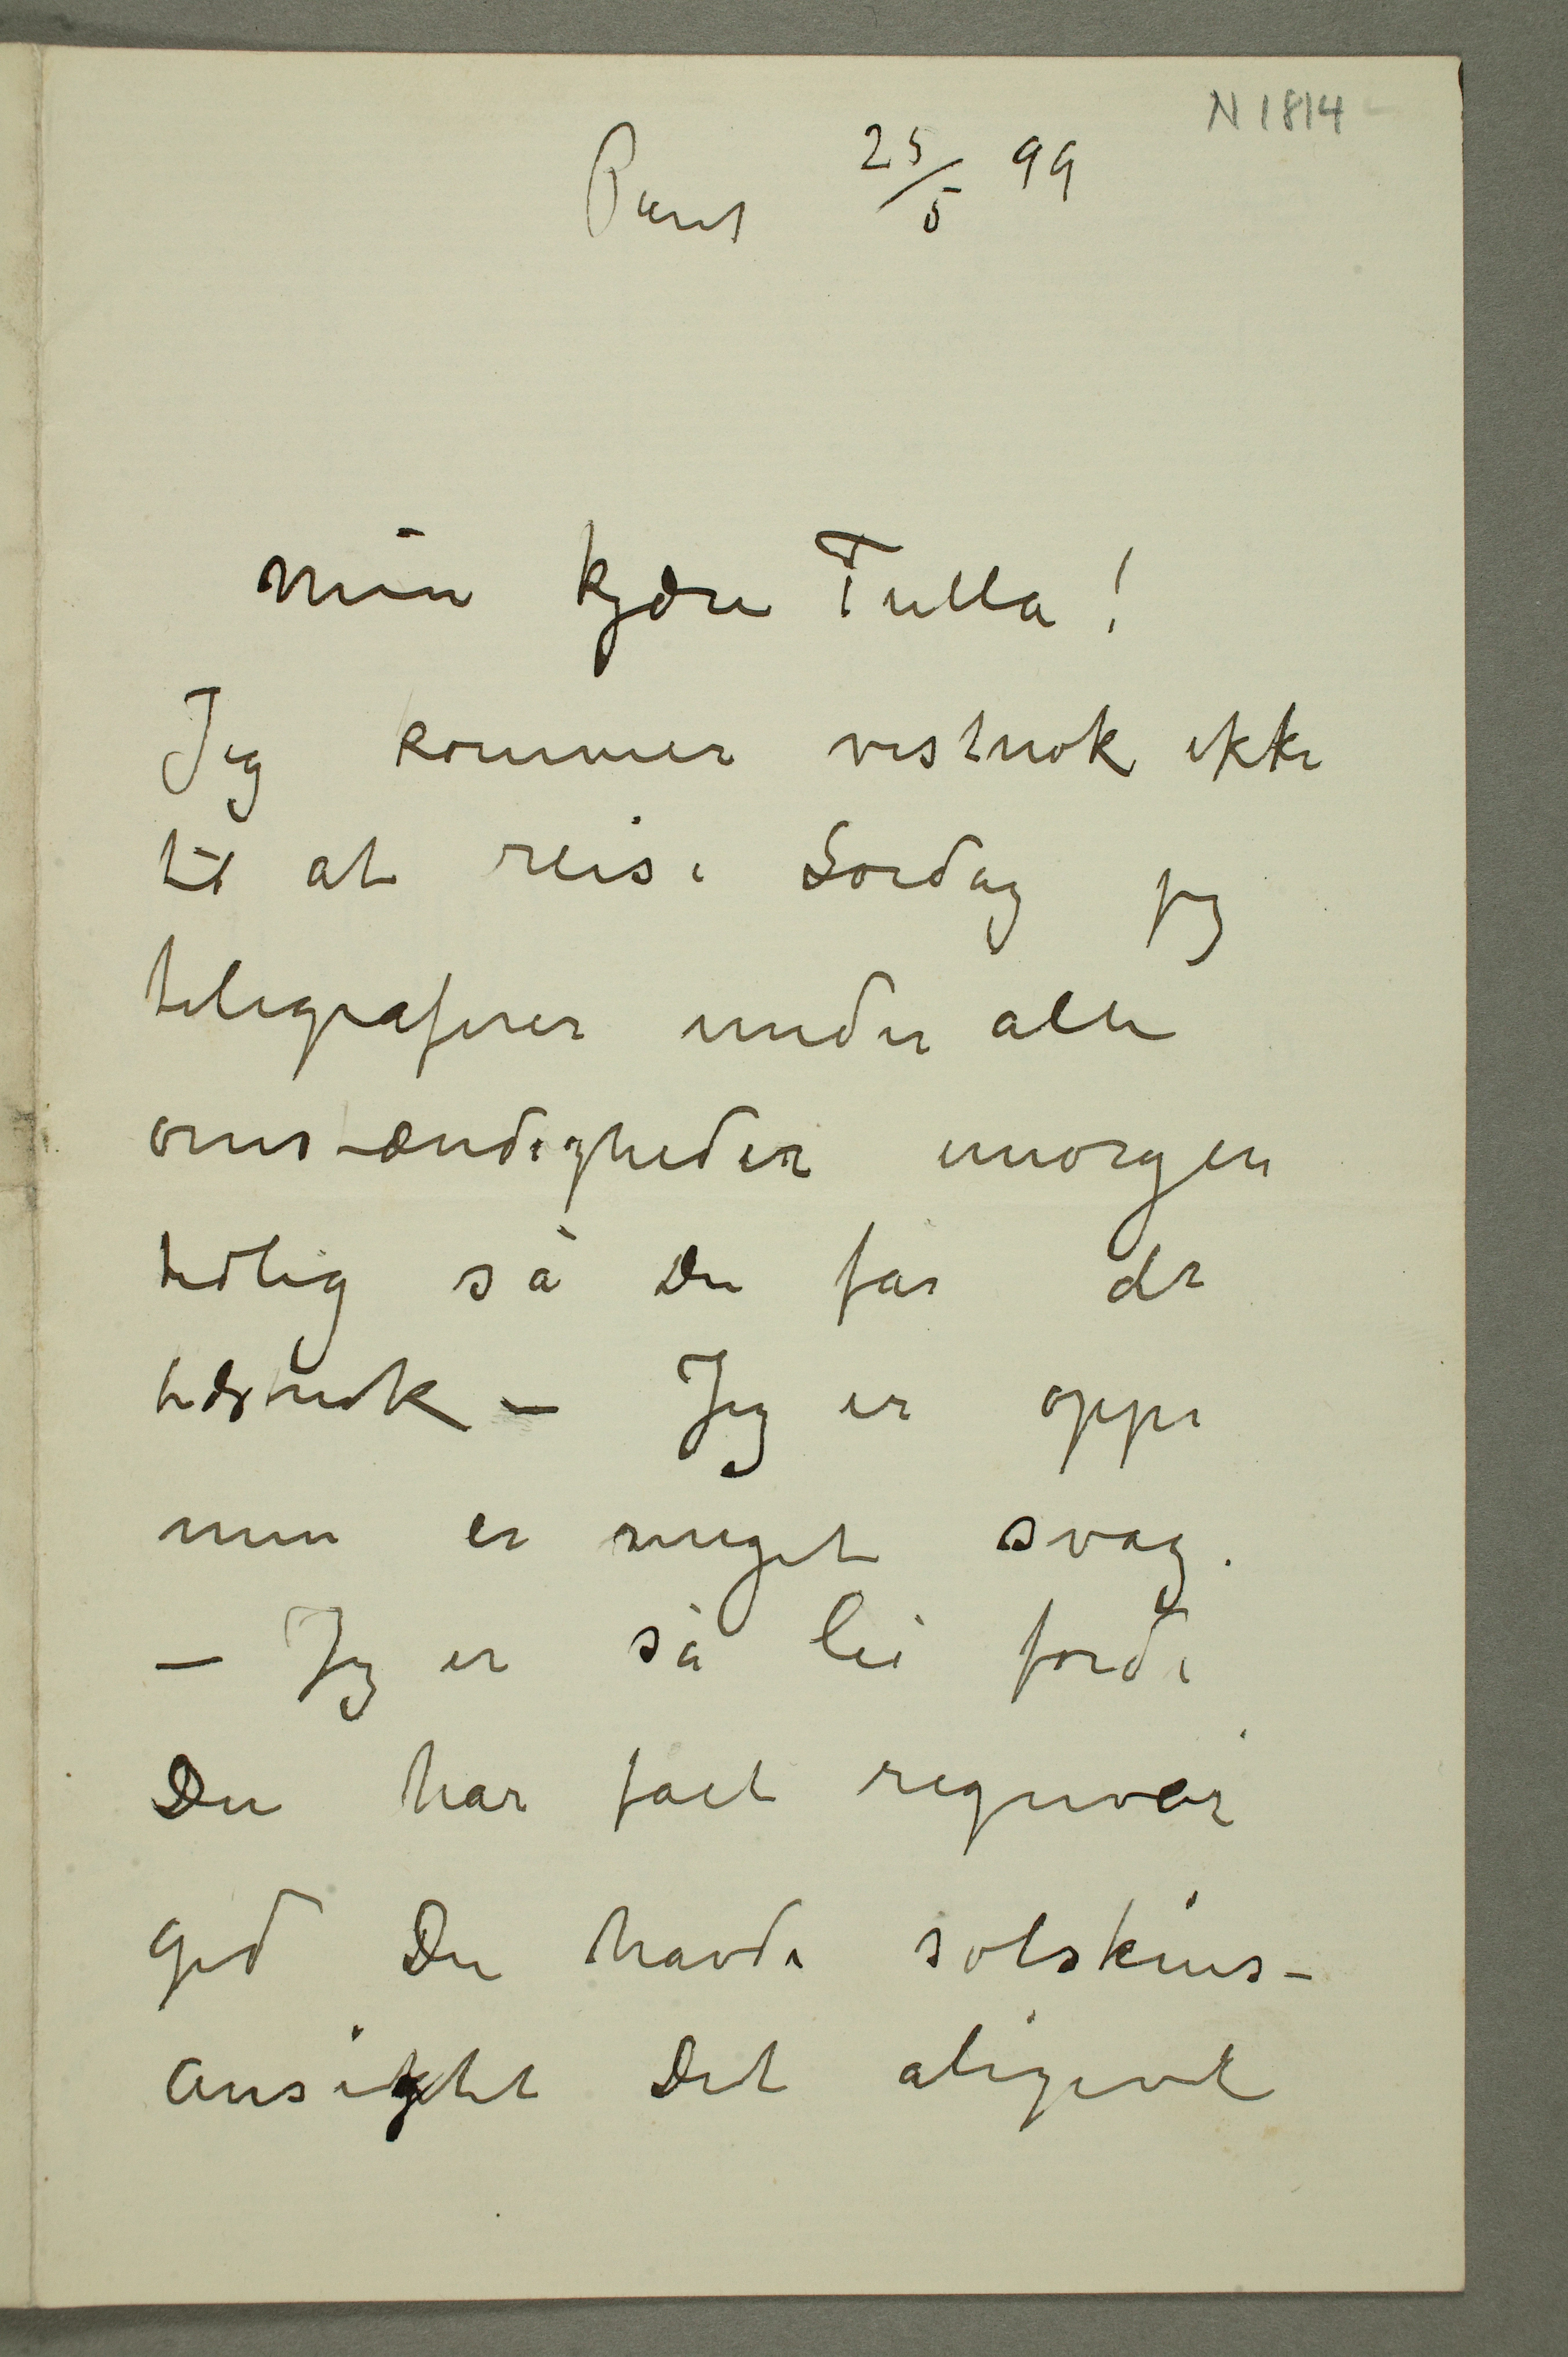 N 1814
Paris 25/5 99
Min kjære Tulla!
Jeg kommer vistnok ikke
til at reise Lördag jeg
telegraferer under alle
omstændigheder imorgen
tidlig så Du får det
tidsnok – Jeg er oppe
men er meget svag.
– Jeg er så lei fordi
Du har fået regnveir
gid Du havde solskins-
ansigtet Dit aligevel